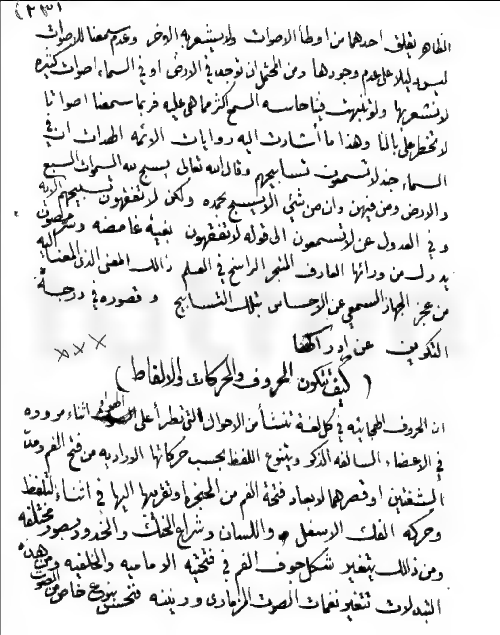 (٢٣)
الظاهر يعلق احدهما من اوطأ الاصوات ولا يشعر به الاخر وعدم سمعنا للاصوات
ليس دليلا على عدم وجودها ومن المحتمل ان توجد في الارض او في السماء اصوات كثيره
لا نشعر بها ولو تنبهت فينا حاسه السمع اكثر مما هي عليه فربما سمعنا اصواتا
لا تخطر على بالنا وهذا ما أشارت اليه روايات الائمه الهداة ان في
السماء جند لا تسمعون تسابيحهم وقال الله تعالى يسبح له السموات السبع
والارض ومن فيهن وان من شئ الا يسبح بحمده ولكن لا تفقهون تسبيحهم الآيه
وفي العدول عن لا تسمعون الى قوله لا تفقهون بغية غامضه وسر مصون
يدرك من ورائها العارف المتبحر الراسخ في العلم ذالك المعنى الذي المعنا اليه
من عجز الجهاز السمعي عن الاحساس بتلك التسابيح وقصوره في درجة
التكوين عن ادراكها
×××
(كيف تتكون الحروف والحركات والالفاظ)
ان الحروف الهجائيه في كل لغة تنشأ من الاحوال التي تطرأ على الصوت اثناء مروره
في الاعضاء السالفه الذكر ويتنوع اللفظ بحسب حركاتها الاراديه من فتح الفم ومد
الشفتين او قصرهما لابعاد فتحة الفم من الحنجرة وتقريبها اليها في اثناء التلفظ
وحركه الفك الاسفل واللسان وشراع الحنك والخدود بصور مختلفه
ومن ذالك يتغير شكل جوف الفم في فتحتيه الاماميه والخلفيه ومن هذه
التبدلات تتغير نغمات الصوت المزماري ورنينه فتحسن بنوع خاص من الصوت